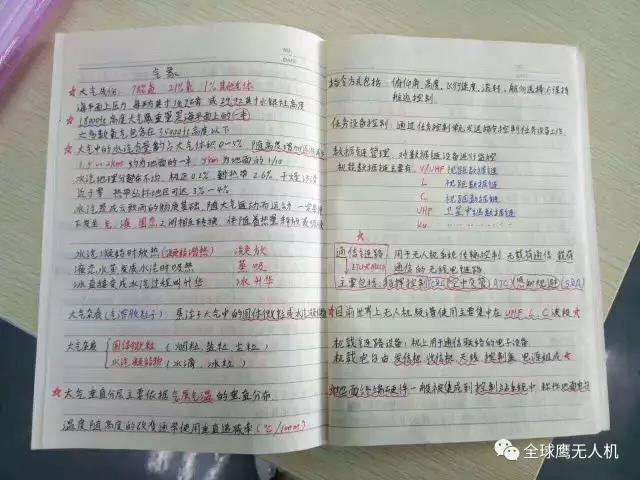 气象
★大气成份: 78%氮 21%氧 1%其他气体
海平面上压力 每平方英寸14.7磅 或 29.92英寸水银柱高度
18000ft高度大气层重量是海平面上的一半
大多数氧气包含在35000ft高度以下
★大气中的水汽含量约占大气体积的0~5% 随高度增加而减少
1.5~2km 约为地面的一半 5km为地面的1/10
水汽地理分布不均 极区0.1% 副热带2.6%
近于零 热带丛林地区可达3%~4%
水汽是成云致雨的物质基础, 随大气运动而运动
气 液 固态之间相互转换, 伴随着热量释放或吸收
水汽凝结时放热(凝结潜热) 凝放
液态水蒸发成水汽时吸热 蒸吸
冰直接变成水汽过程叫升华 冰升华
大气杂质(气溶胶粒子) 悬浮于大气中的固体微粒或水汽凝结物
大气杂质 固体微粒 (烟粒, 盐粒, 尘粒)
水汽凝结物 (水滴, 冰粒)
★大气垂直分层主要依据气层气温的垂直分布
温度随高度的改变通常使用垂直递减率(℃/100m)
NO.
DATE
指令方式包括: 俯仰角, 高度, 飞行速度, 滚转, 航向选择/保持
航迹控制
任务设备控制: 通过任务控制单元发送指令控制任务设备工作
数据链管理: 对数据链设备进行监控
机载数据链主要有: V/UHF 视距数据链
L 视距数据链
C 视距数据链
UHF 卫星中继数据链
Ku
★
通信链路 用于无人机系统传输控制 无载荷通信 载荷
通信的无线电链路
ITU-R M.2171
主要包括: 指挥控制(C&C) 空中交管(ATC) 感知规避(S&A)
★目前世界上无人机频谱使用主要集中在UHF, L, C波段★
机载链路设备: 机上用于通信联络的电子设备
机载电台由发信机 收信机 天线 控制盒 电源组成★
★地面终端硬件一般被集成到控制站系统中 称作地面电台
全球鹰无人机